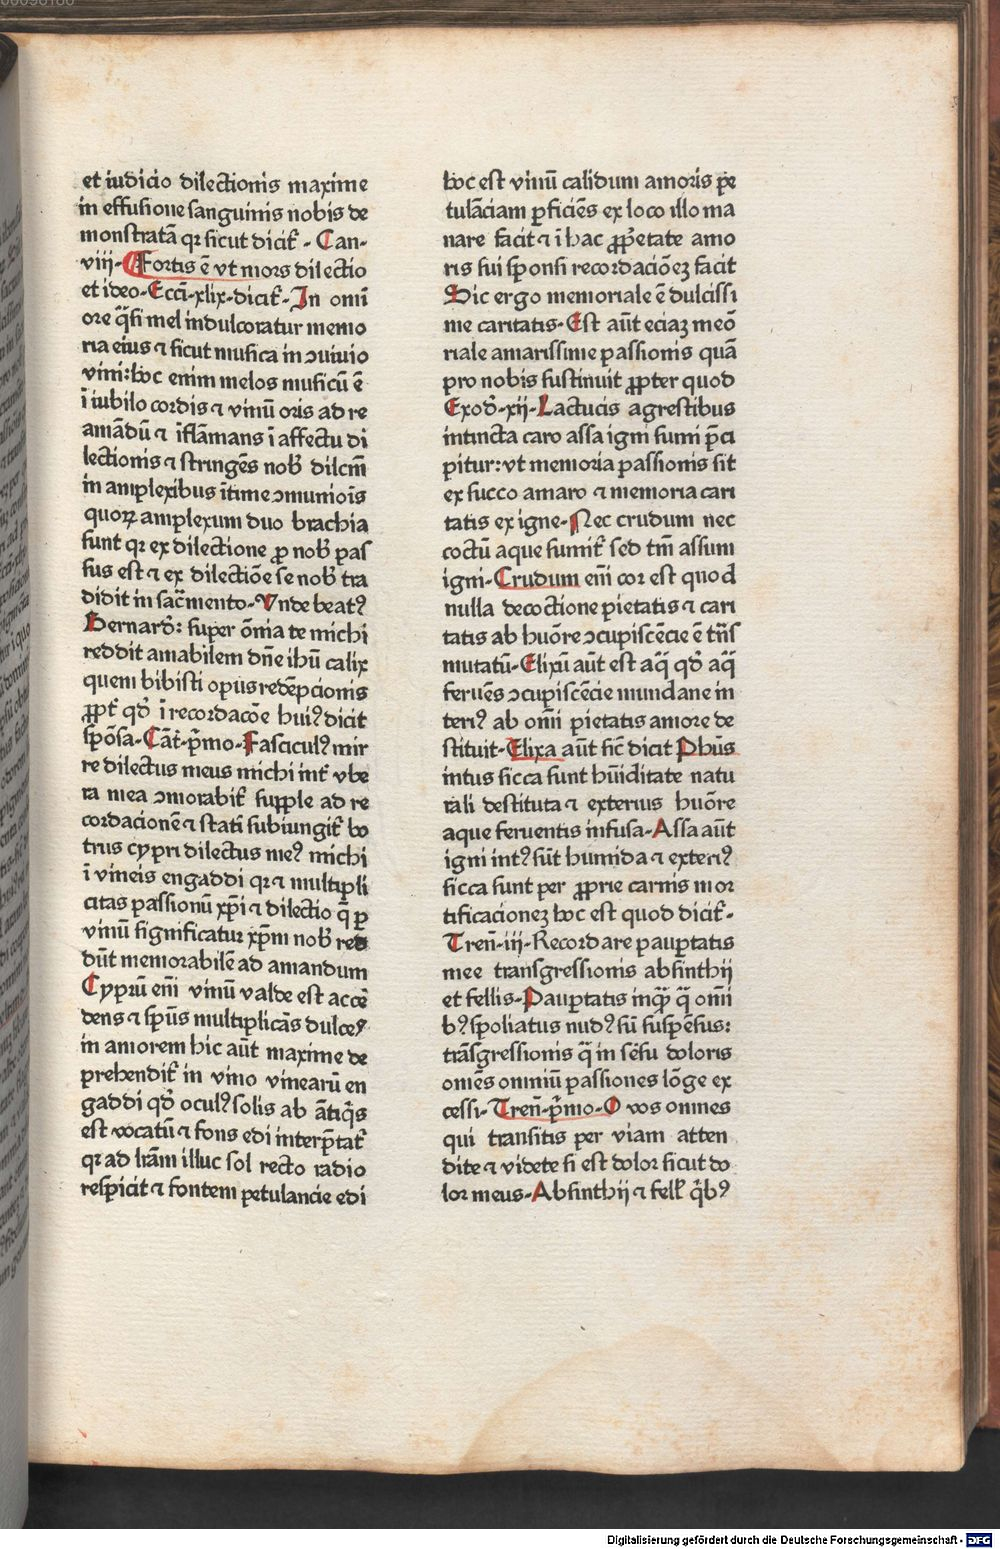 et iudicio dilectionis maxime
in effusione sanguinis nobis de
monstratã qꝛ sicut dicit᷑ · Can·
viij· Fortis ẽ vt mors dilectio
et ideo· Ecci· xlix· dicit᷑· In omĩ
ore q̃si mel indulcoratur memo
ria eius ⁊ sicut musica in ↄuiuio
vini: hoc enim melos musicũ ẽ
ĩ iubilo cordis ⁊ vinũ oris ad re
amãdũ ⁊ ĩflãmans ĩ affectu di
lectionis ⁊ stringẽs nob̃ dilcm̃
in amplexibus ĩtime ↄmunioĩs
quoꝝ amplexum duo brachia
sunt qꝛ ex dilectione ꝓ nob̃ pas
sus est ⁊ ex dilectiõe se nob̃ tra
didit in sac̃mento· Vnde beatꝰ
Bernard᷒: super om̃ia te michi
reddit amabilem dñe ihũ calix
quem bibisti opus redẽpcionis
ꝓpt᷑ qd̓ ĩ recordacõe huiꝰ dicit
spõsa· Cãt· p̃mo· Fasciculꝰ mir
re dilectus meus michi int᷑ vbe
ra mea ↄmorabit᷑ supple ad re
cordacionẽ ⁊ stati subiungit᷑ bo
trus cypri dilectus meꝰ michi
ĩ vineis engaddi qꝛ ⁊ multipli
citas passionũ xp̃i ⁊ dilectio q̃ ꝑ
vinũ significatur xp̃m nob̃ red
dũt memorabilẽ ad amandum
Cyprũ em̃ vinũ valde est accẽ
dens ⁊ sp̃us multiplicãs dulceꝰ
in amorem hic aũt maxime de
prehendit᷑ in vino vinearũ en
gaddi qd̓ oculꝰ solis ab ãtiq̃s
est vocatũ ⁊ fons edi interp̃tat᷑
qꝛ ad l̃ram illuc sol recto radio
respicit ⁊ fontem petulancie edi
hoc est vinũ calidum amoris pe
tulãciam ꝑficiẽs ex loco illo ma
nare facit ⁊ ĩ hac ꝓp̃etate amo
ris sui sponsi recordaciõeꝫ facit
Sic ergo memoriale ẽ dulcissi
me caritatis· Est aũt eciaꝫ meõ
riale amarissime passionis quã
pro nobis sustinuit ꝓpter quod
Exod̓· xij· Lactucis agrestibus
intincta caro assa igni sumi p̃ci
pitur: vt memoria passionis sit
ex succo amaro ⁊ memoria cari
tatis ex igne· Nec crudum nec
coctũ aque sumit᷑ sed tm̃ assum
igni· Crudum em̃ cor est quod
nulla decoctione pietatis ⁊ cari
tatis ab huõre ↄcupiscẽcie ẽ tñs
mutatũ· Elixũ aũt est aq̃ qd̓ aq̃
feruẽs ↄcupiscẽcie mundane in
teriꝰ ab om̃i pietatis amore de
stituit· Elixa aũt sic̃ dicit Ph̃us
intus sicca sunt hũiditate natu
rali destituta ⁊ exterius huõre
aque feruentis infusa· Assa aũt
igni intꝰ sũt humida ⁊ exteriꝰ
sicca sunt per ꝓprie carnis mor
tificacioneꝫ hoc est quod dicit᷑·
Tren̄· iij· Recordare pauꝑtatis
mee transgressionis absinthij
et fellis· Pauꝑtatis inq̃ q̃ om̃i
bꝰ spoliatus nudꝰ sũ suspẽsus:
trãsgressionis q̃ in sẽsu doloris
omẽs omniũ passiones lõge ex
cessi· Tren̄· p̃mo· O vos omnes
qui transitis per viam atten
dite ⁊ videte si est dolor sicut do
lor meus· Absinthij ⁊ fell᷑ q̃bꝰ